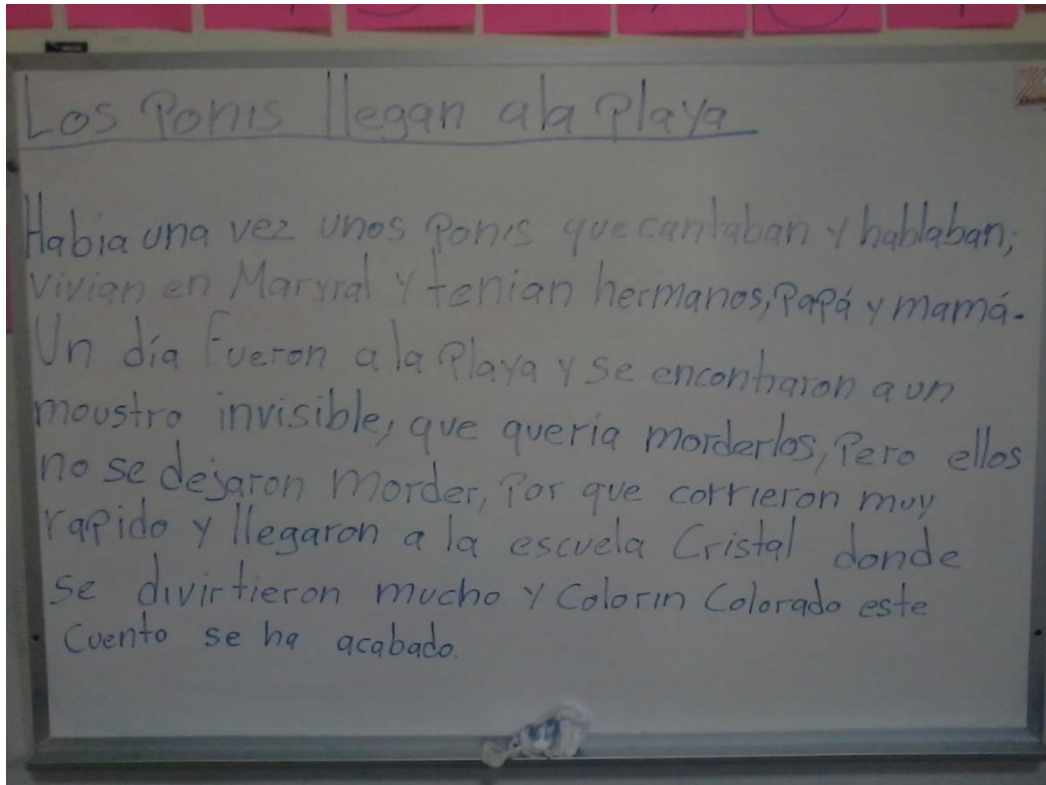 Los Ponis llegan ala Playa
Habia una vez unos Ponis que cantaban y hablaban;
vivian en Maryral y tenian hermanos, Papá y mamá.
Un día fueron a la Playa y se encontraron a un
moustro invisible; que queria morderlos, Pero ellos
no se dejaron morder, Por que corrieron muy
rapido y llegaron a la escuela Cristal donde
se divirtieron mucho y Colorin Colorado este
Cuento se ha acabado.